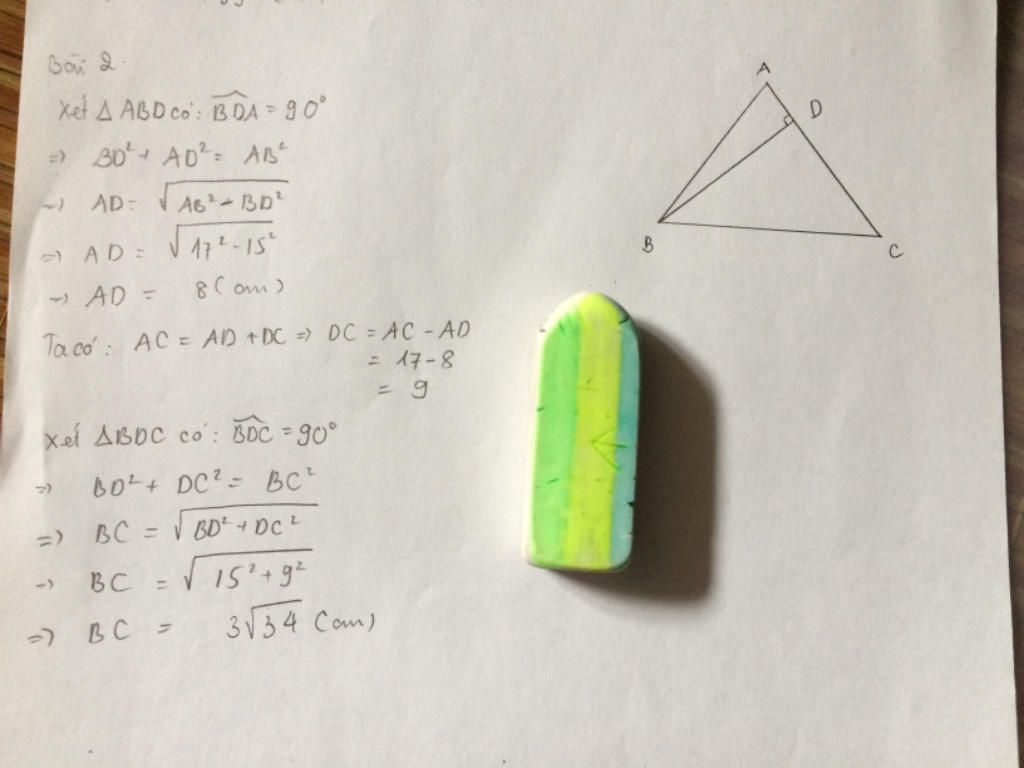 Bài 2
Xét Δ ABD có: \widehat{BDA} = 90°
=> BD² + AD² = AB²
=> AD = √(AB² - BD²)
=> AD = √(17² - 15²)
=> AD = 8 (cm)
Ta có: AC = AD + DC => DC = AC - AD
= 17 - 8
= 9
Xét ΔBDC có: \widehat{BDC} = 90°
=> BD² + DC² = BC²
=> BC = √(BD² + DC²)
=> BC = √(15² + 9²)
=> BC = 3√34 (cm)
A
D
B
C